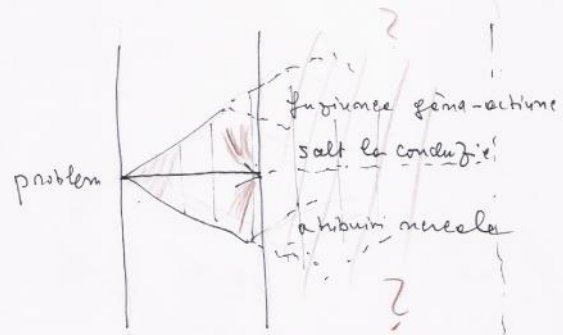 ?
fuziunea gând-acțiune
salt la concluzie
problem
atribuiri nereale
?